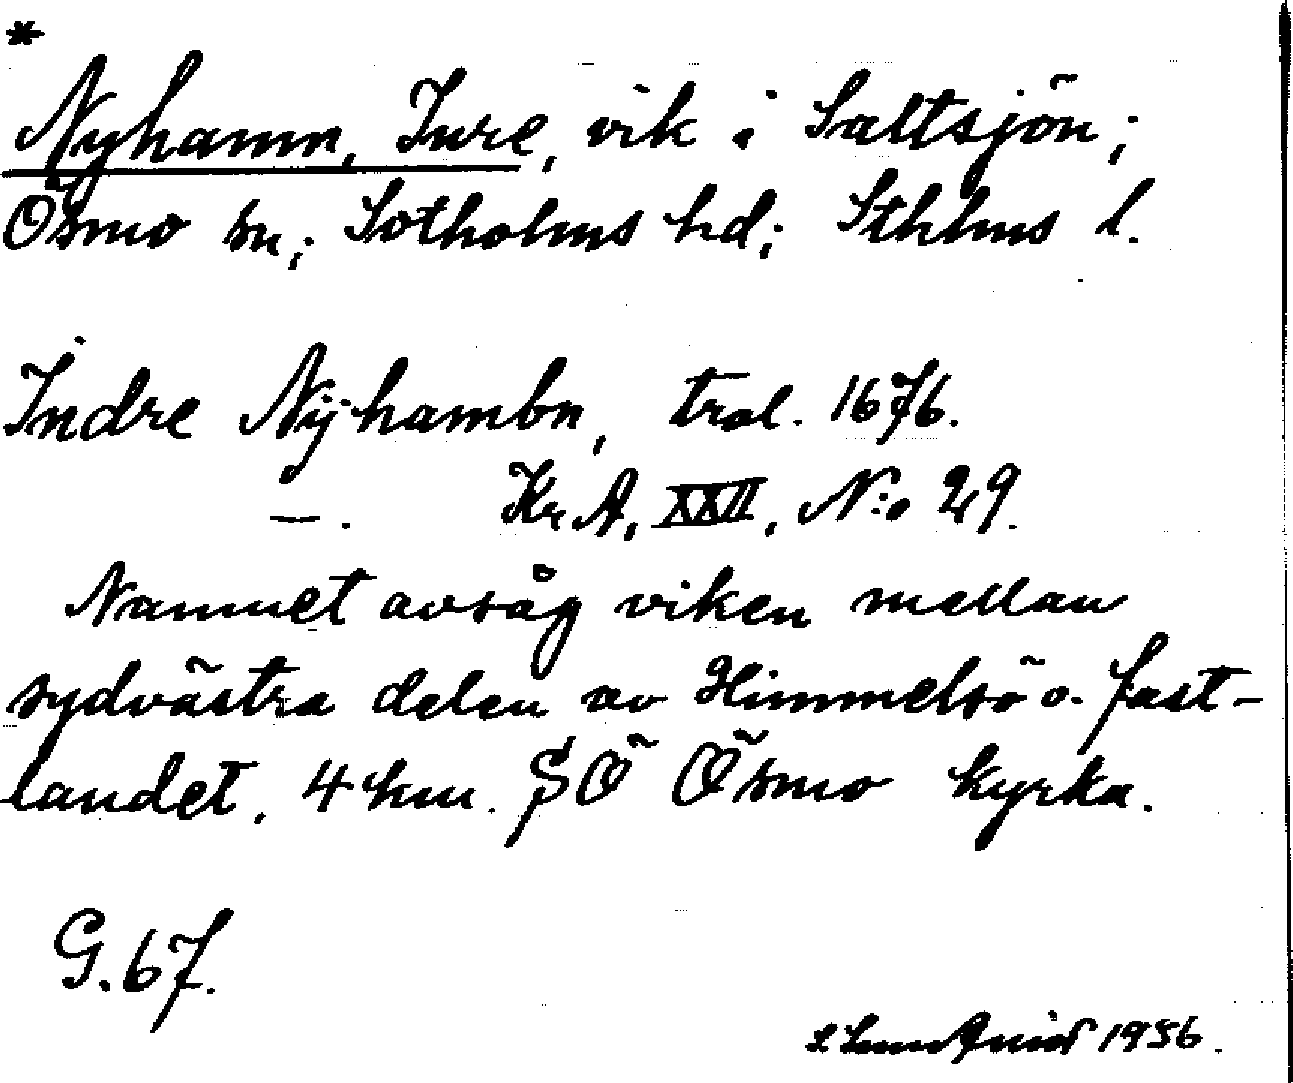 *
Nyhamn, Inre, vik i Saltsjön;
Ösmo sn; Sotholms hd; Sthlms l.
Indre Nÿhambn, trol. 1676.
—. KrA, XXII, N:o 29.
Namnet avsåg viken mellan
sydvästra delen av Himmelsö o. fast-
landet, 4 km. SÖ Ösmo kyrka.
G. 67.
1956.